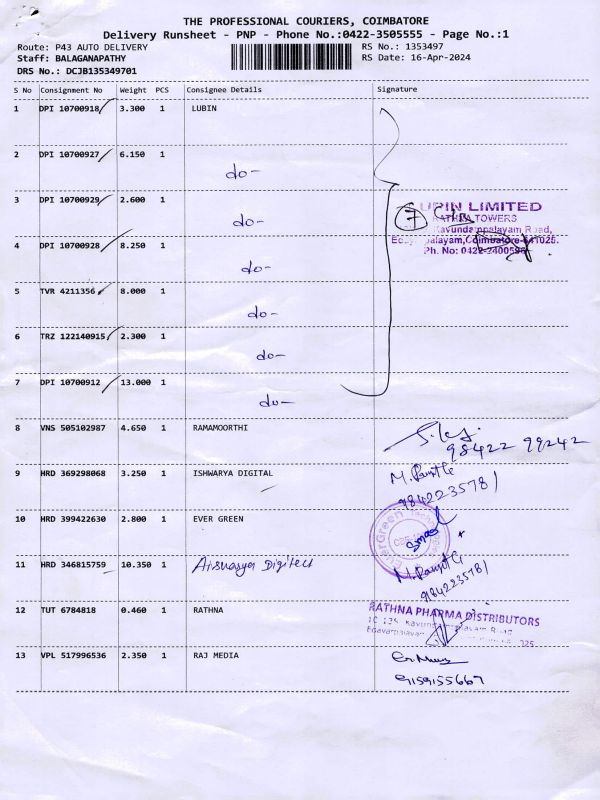 THE PROFESSIONAL COURIERS, COIMBATORE
Delivery Runsheet - PNP - Phone No.:0422-3505555 - Page No.:1
Route: P43 AUTO DELIVERY
Staff: BALAGANAPATHY
DRS No.: DCJB135349701
RS No.: 1353497
RS Date: 16-Apr-2024
S No Consignment No Weight PCS Consignee Details Signature
1 DPI 10700918 3.300 1 LUBIN
2 DPI 10700927 6.150 1 do-
3 DPI 10700929 2.600 1 do-
4 DPI 10700928 8.250 1 do-
5 TVR 4211356 8.000 1 do-
6 TRZ 122140915 2.300 1 do-
7 DPI 10700912 13.000 1 do-
7
LUPIN LIMITED
RATHNA TOWERS
Kavundampalayam Road,
Coimbatore-641025.
Ph. No: 0422-
8 VNS 505102987 4.650 1 RAMAMOORTHI
98422 99242
9 HRD 369298068 3.250 1 ISHWARYA DIGITAL
9842235781
10 HRD 399422630 2.800 1 EVER GREEN
EverGreen
11 HRD 346815759 10.350 1 Aishwarya Digital
9842235781
12 TUT 6784818 0.460 1 RATHNA
RATHNA PHARMA DISTRIBUTORS
13 VPL 517996536 2.350 1 RAJ MEDIA
9159155667